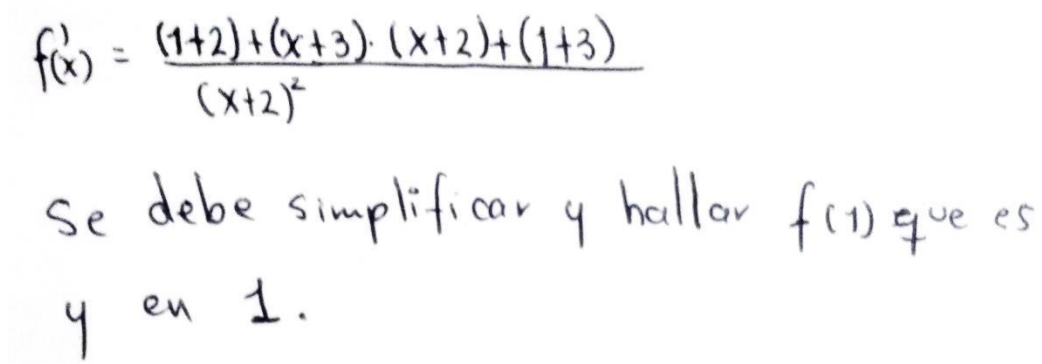 f'(x) = \frac{(1+2)+(x+3)·(x+2)+(1+3)}{(x+2)^2}
Se debe simplificar y hallar f(1) que es
y en 1.